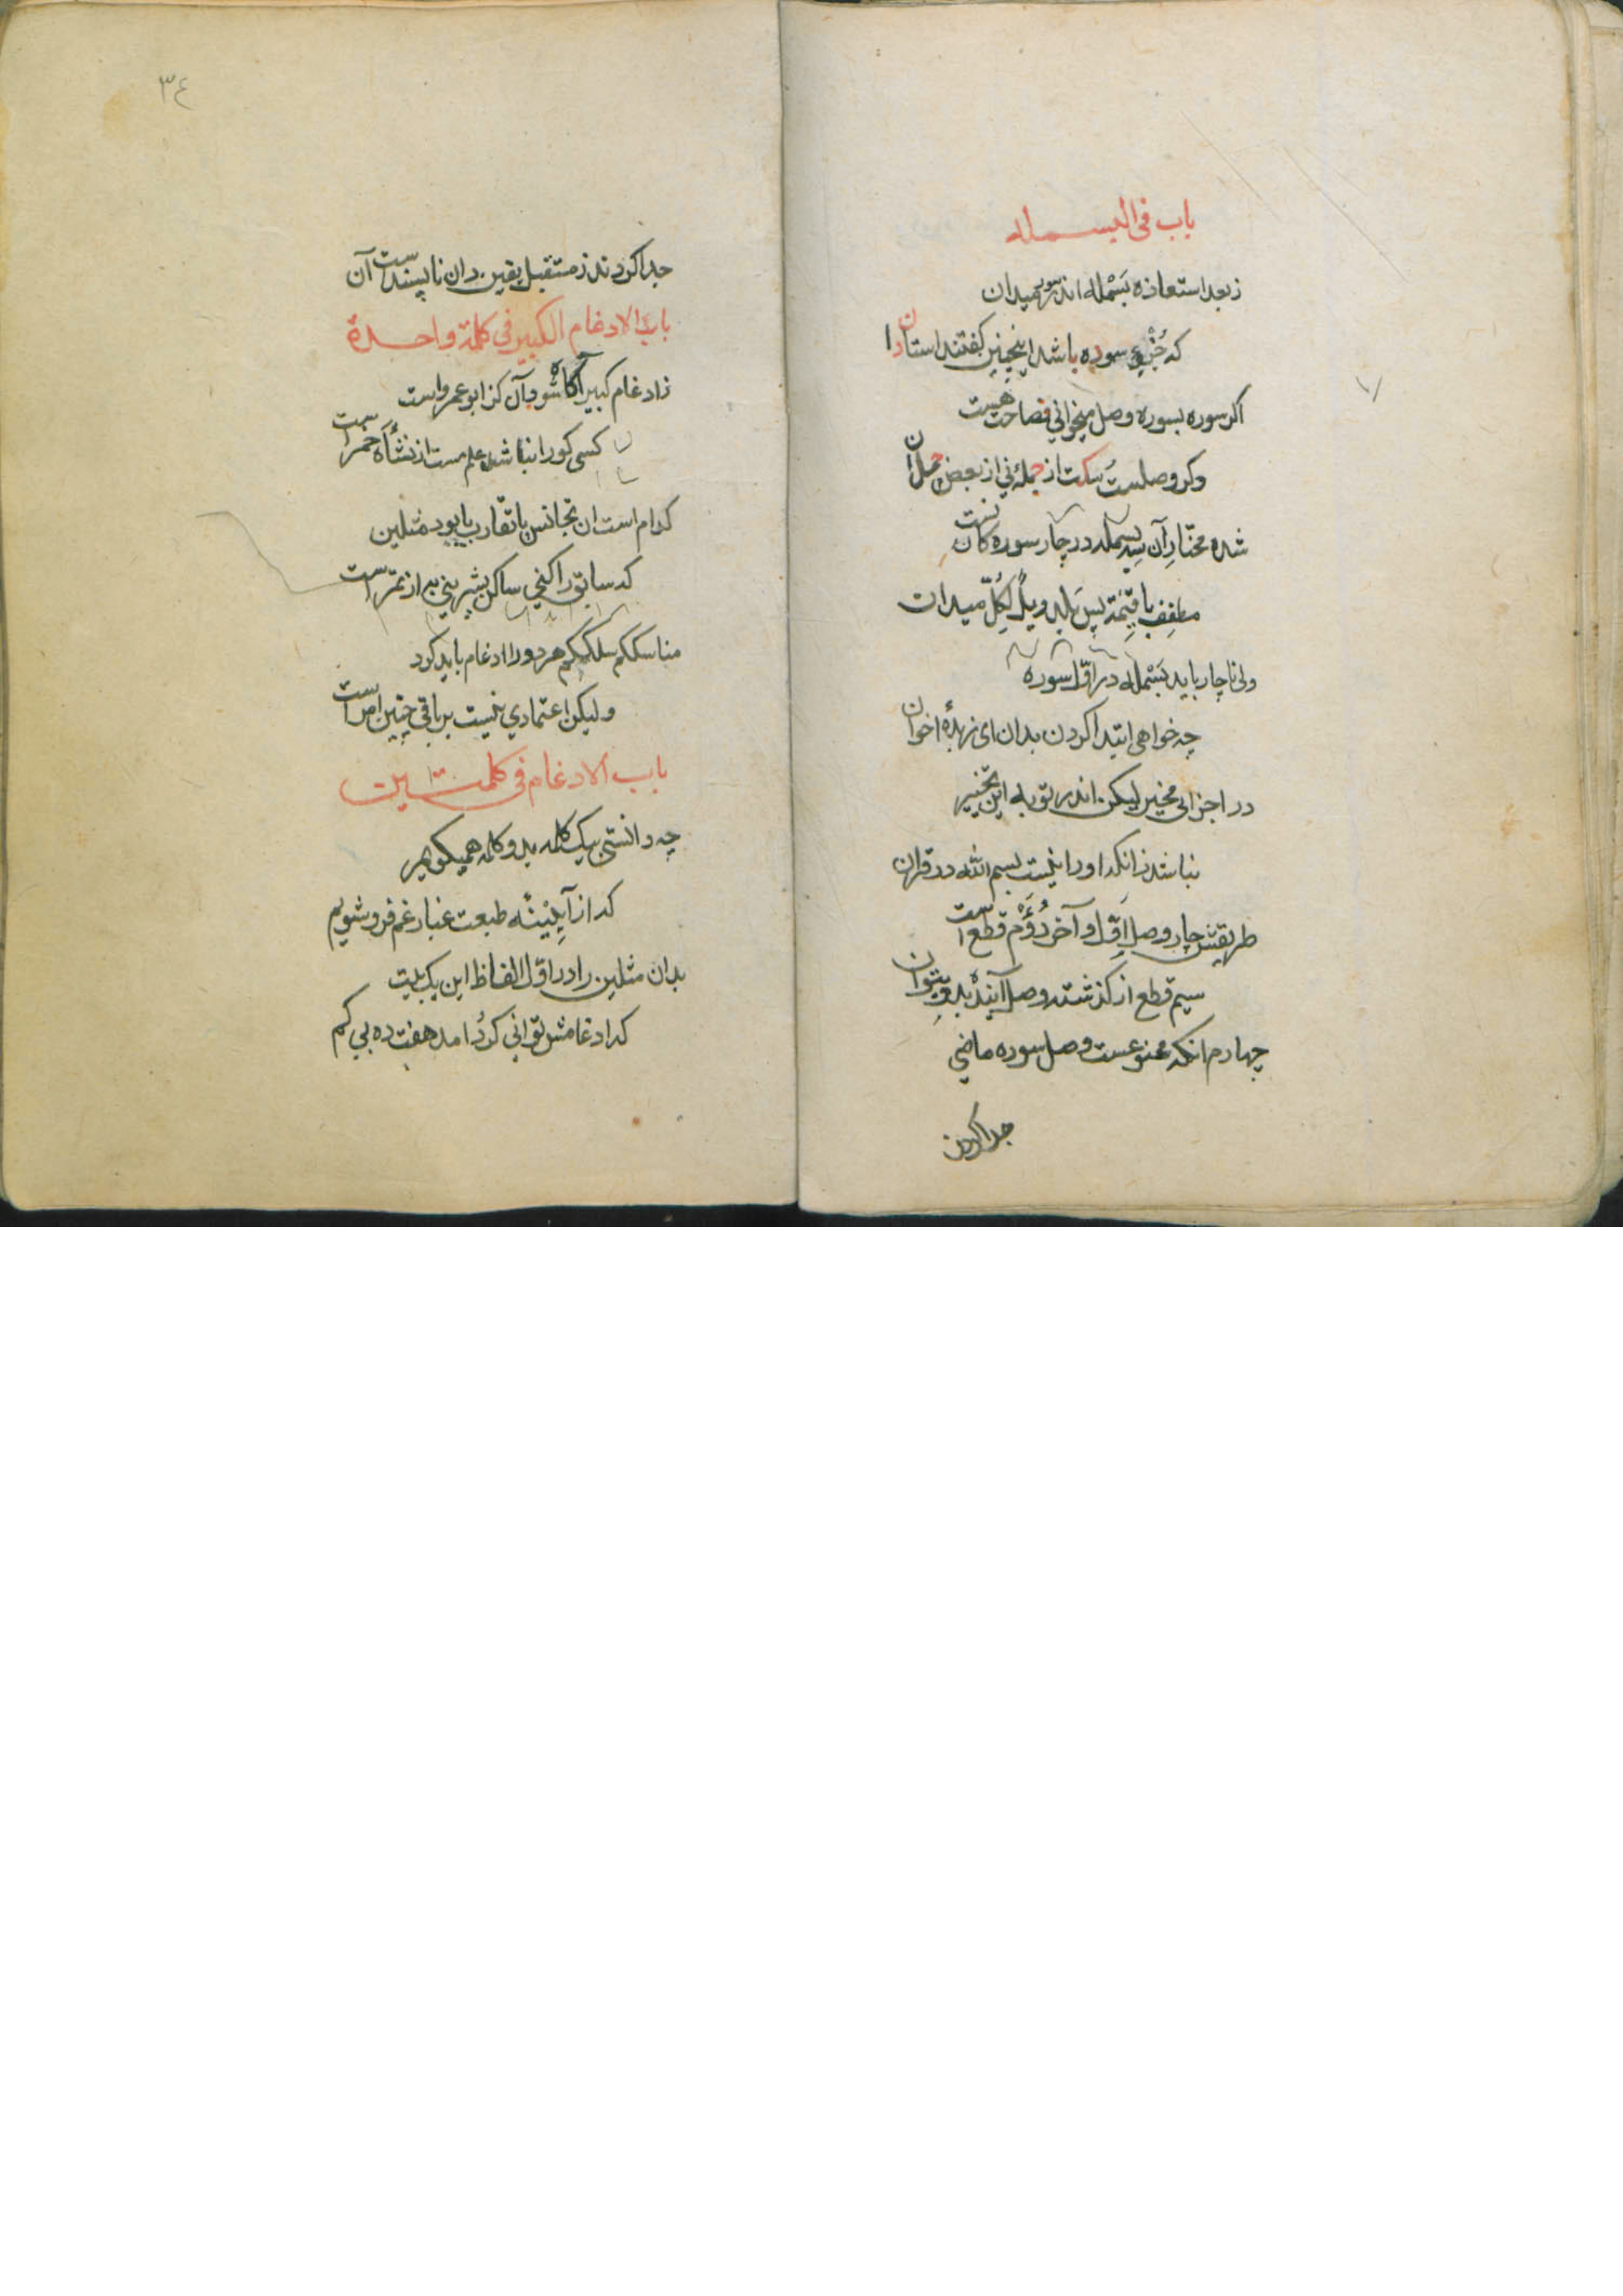 باب فی البسمله
زبعد استعاذه بَسْمله اندر سور میدان
که جُزْءِ سوره باشد اینچنین گفتند استادان
اکر سوره بسوره وصل میخوانی فصاحت هست
وکر وصلست سکت از جمله نی از بعض جمله دان
شده مختار آن بسمله در چار سوره کان
مطفف با قیٰمة پس بلد ویلٌ لِکُلّ میدان
ولی ناچار باید بَسْمله در اوّل سوره
چه خواهی ابتدا کردن بدان ای زبدهٔ اخوان
در اجزایی مخیر لیکن اندر توبه این تخییر
نباشد زانکه او را نیست بسم الله در قران
طریقش چار وصل اوّل و آخر دُوُم قطع است
سیم قطع از کذشته وصل آینده بدو بتوان
چهارم انکه ممنوعست وصل سوره ماضی
جدا کردن
٣٤
جدا کردند ز مستقبل یقین دان ناپسندست آن
باب الادغام الکبیر فی کلمة واحدة
زادغام کبیر آکاه شو وآن کز ابو عمرو است
کسی کو را نباشد علم مست از نشأه خمر است
کدام است ان تجانس یا تقارب یا بود مثلین
که سابق را کنی ساکن بشیرینی به از تمر است
مناسککم سلککم هر دو را ادغام باید کرد
ولیکن اعتمادی نیست بر باقی چنین امر است
باب الادغام فی کلمتین
چه دانستی بیک کلمه بدو کلمه همیکوهیر
که از آیینهٔ طبعت غبار غم فرو شویم
بدان مثلین را در اوّل الفاظ این یک بیت
که ادغامش توانی کرد امد هفت ده بی کم